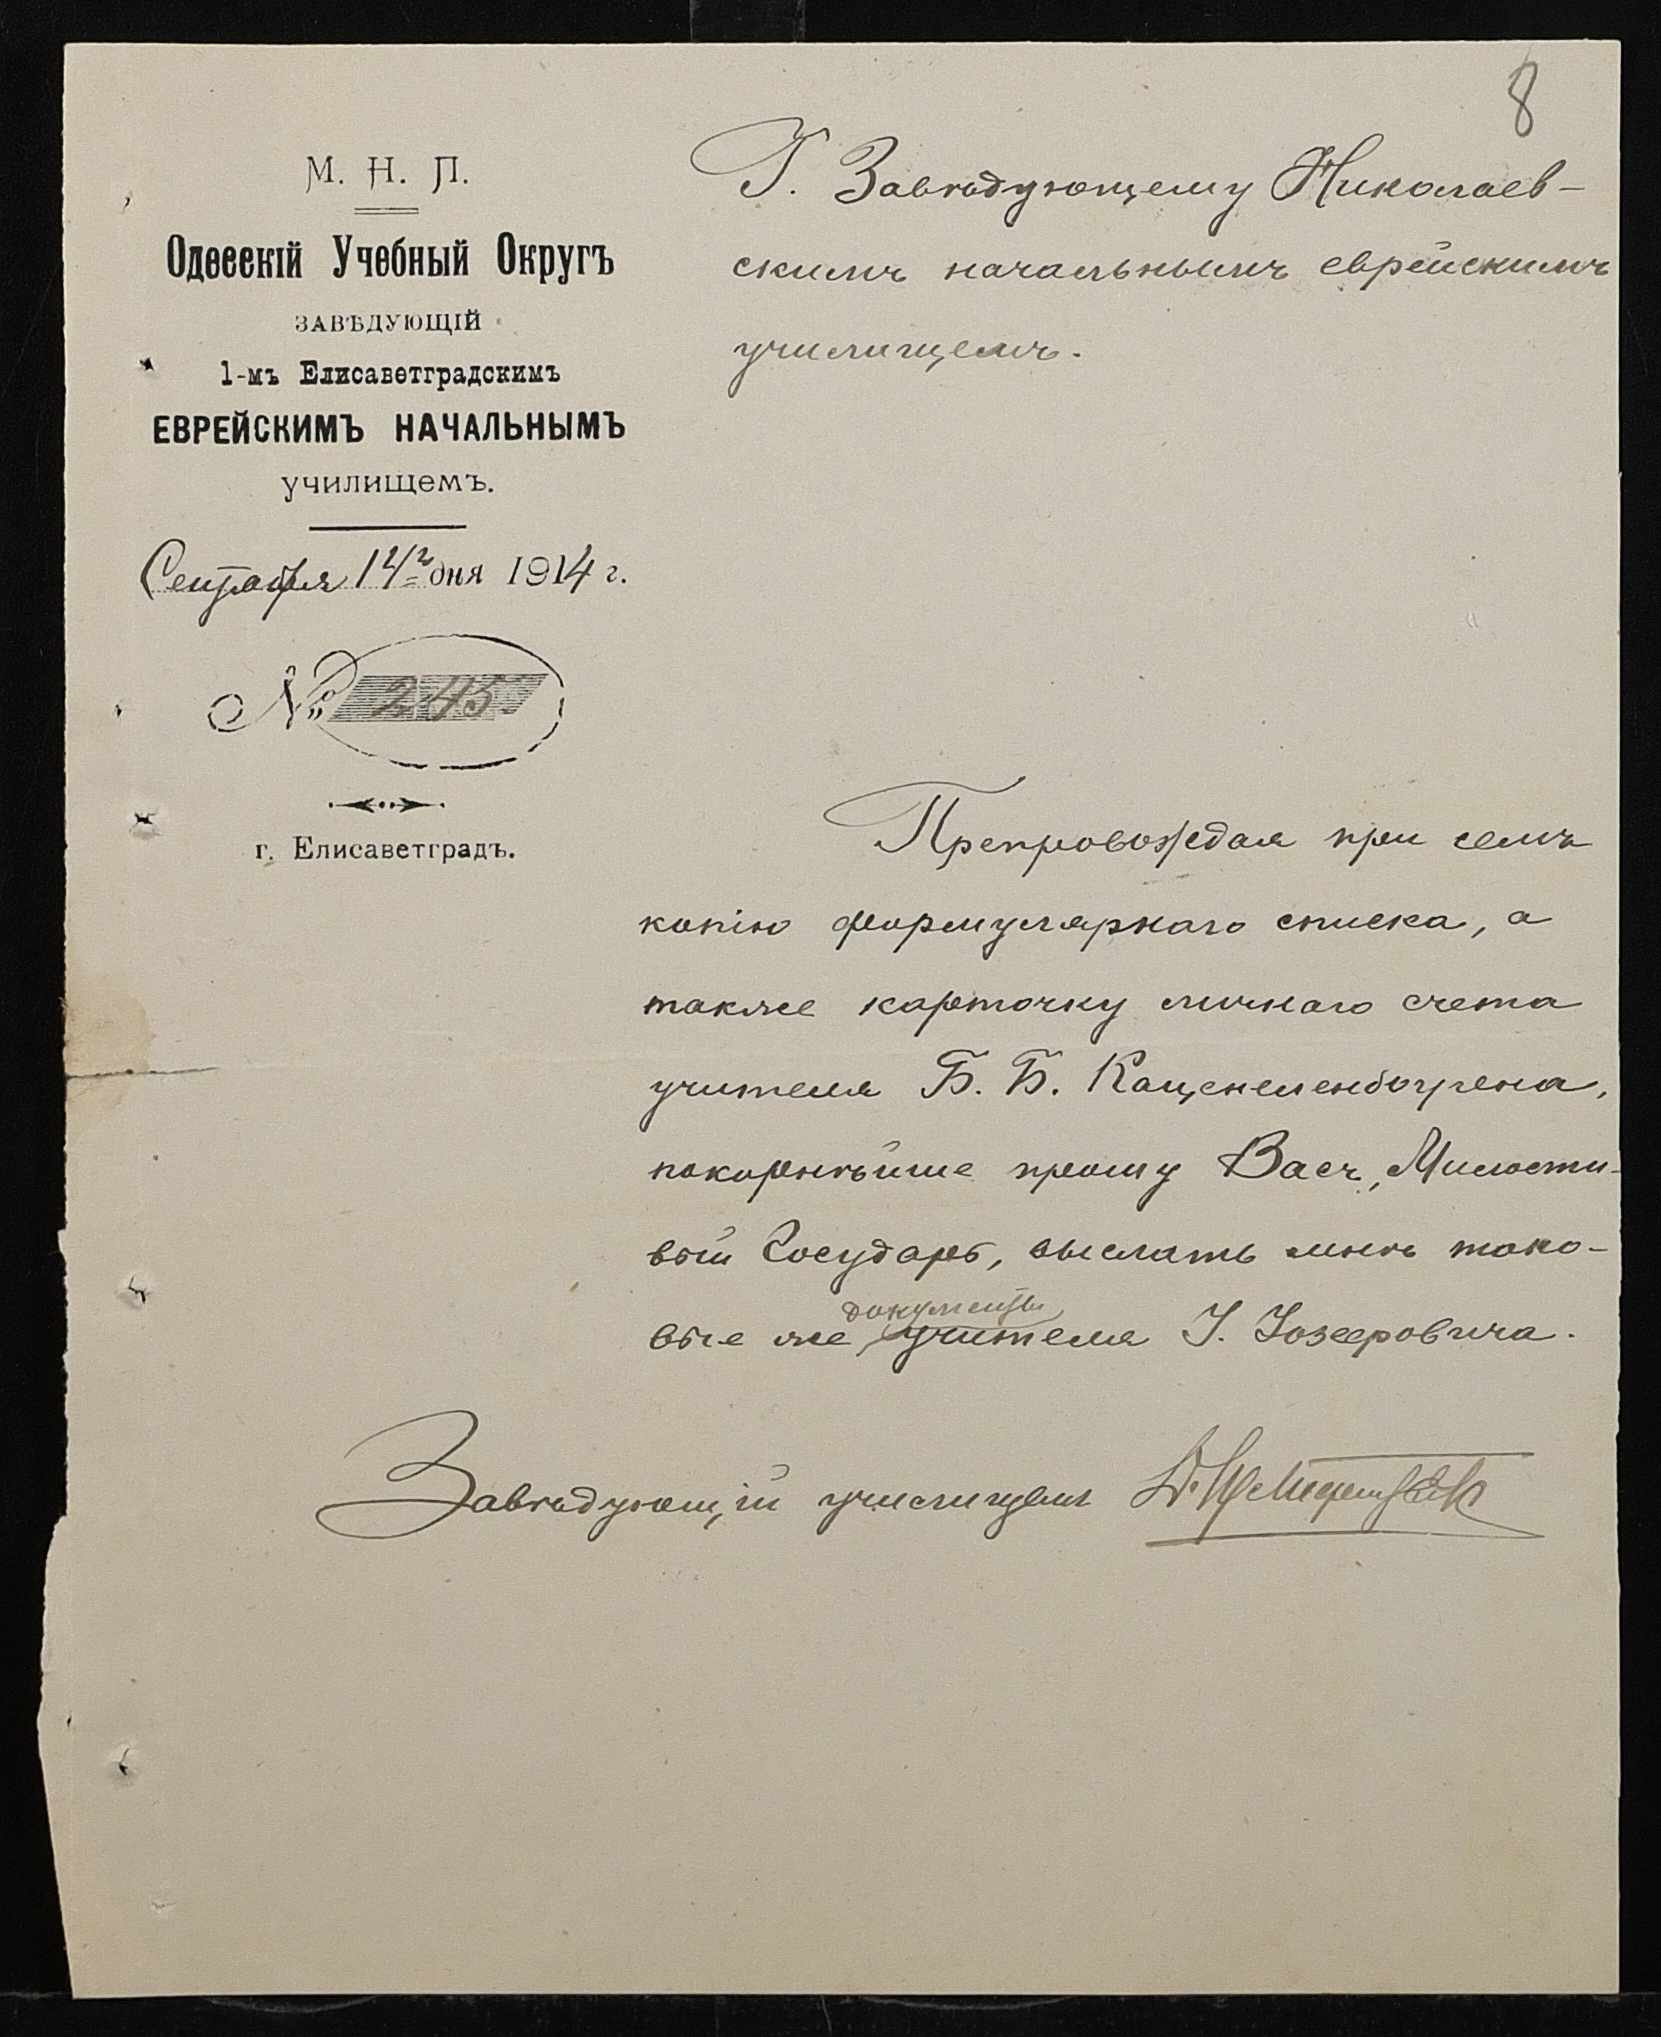 8
М. Н. П.
Одесскій Учебный Округъ
ЗАВѢДУЮЩІЙ
1-мъ Елисаветградскимъ
ЕВРЕЙСКИМЪ НАЧАЛЬНЫМЪ
училищемъ.
Сентября 14го дня 1914 г.
№ 245
г. Елисаветградъ.
Г. Завѣдующему Николаев-
скимъ начальнымъ еврейскимъ
училищемъ.
Препровождая при семъ
копію формулярнаго списка, а
также карточку личнаго счета
учителя Б. Б. Каценеленбогена,
покорнѣйше прошу Васъ, Милости-
вый Государь, выслать мнѣ тако-
документы
вые же учителя І. Іозефовича.
Завѣдующій училищемъ